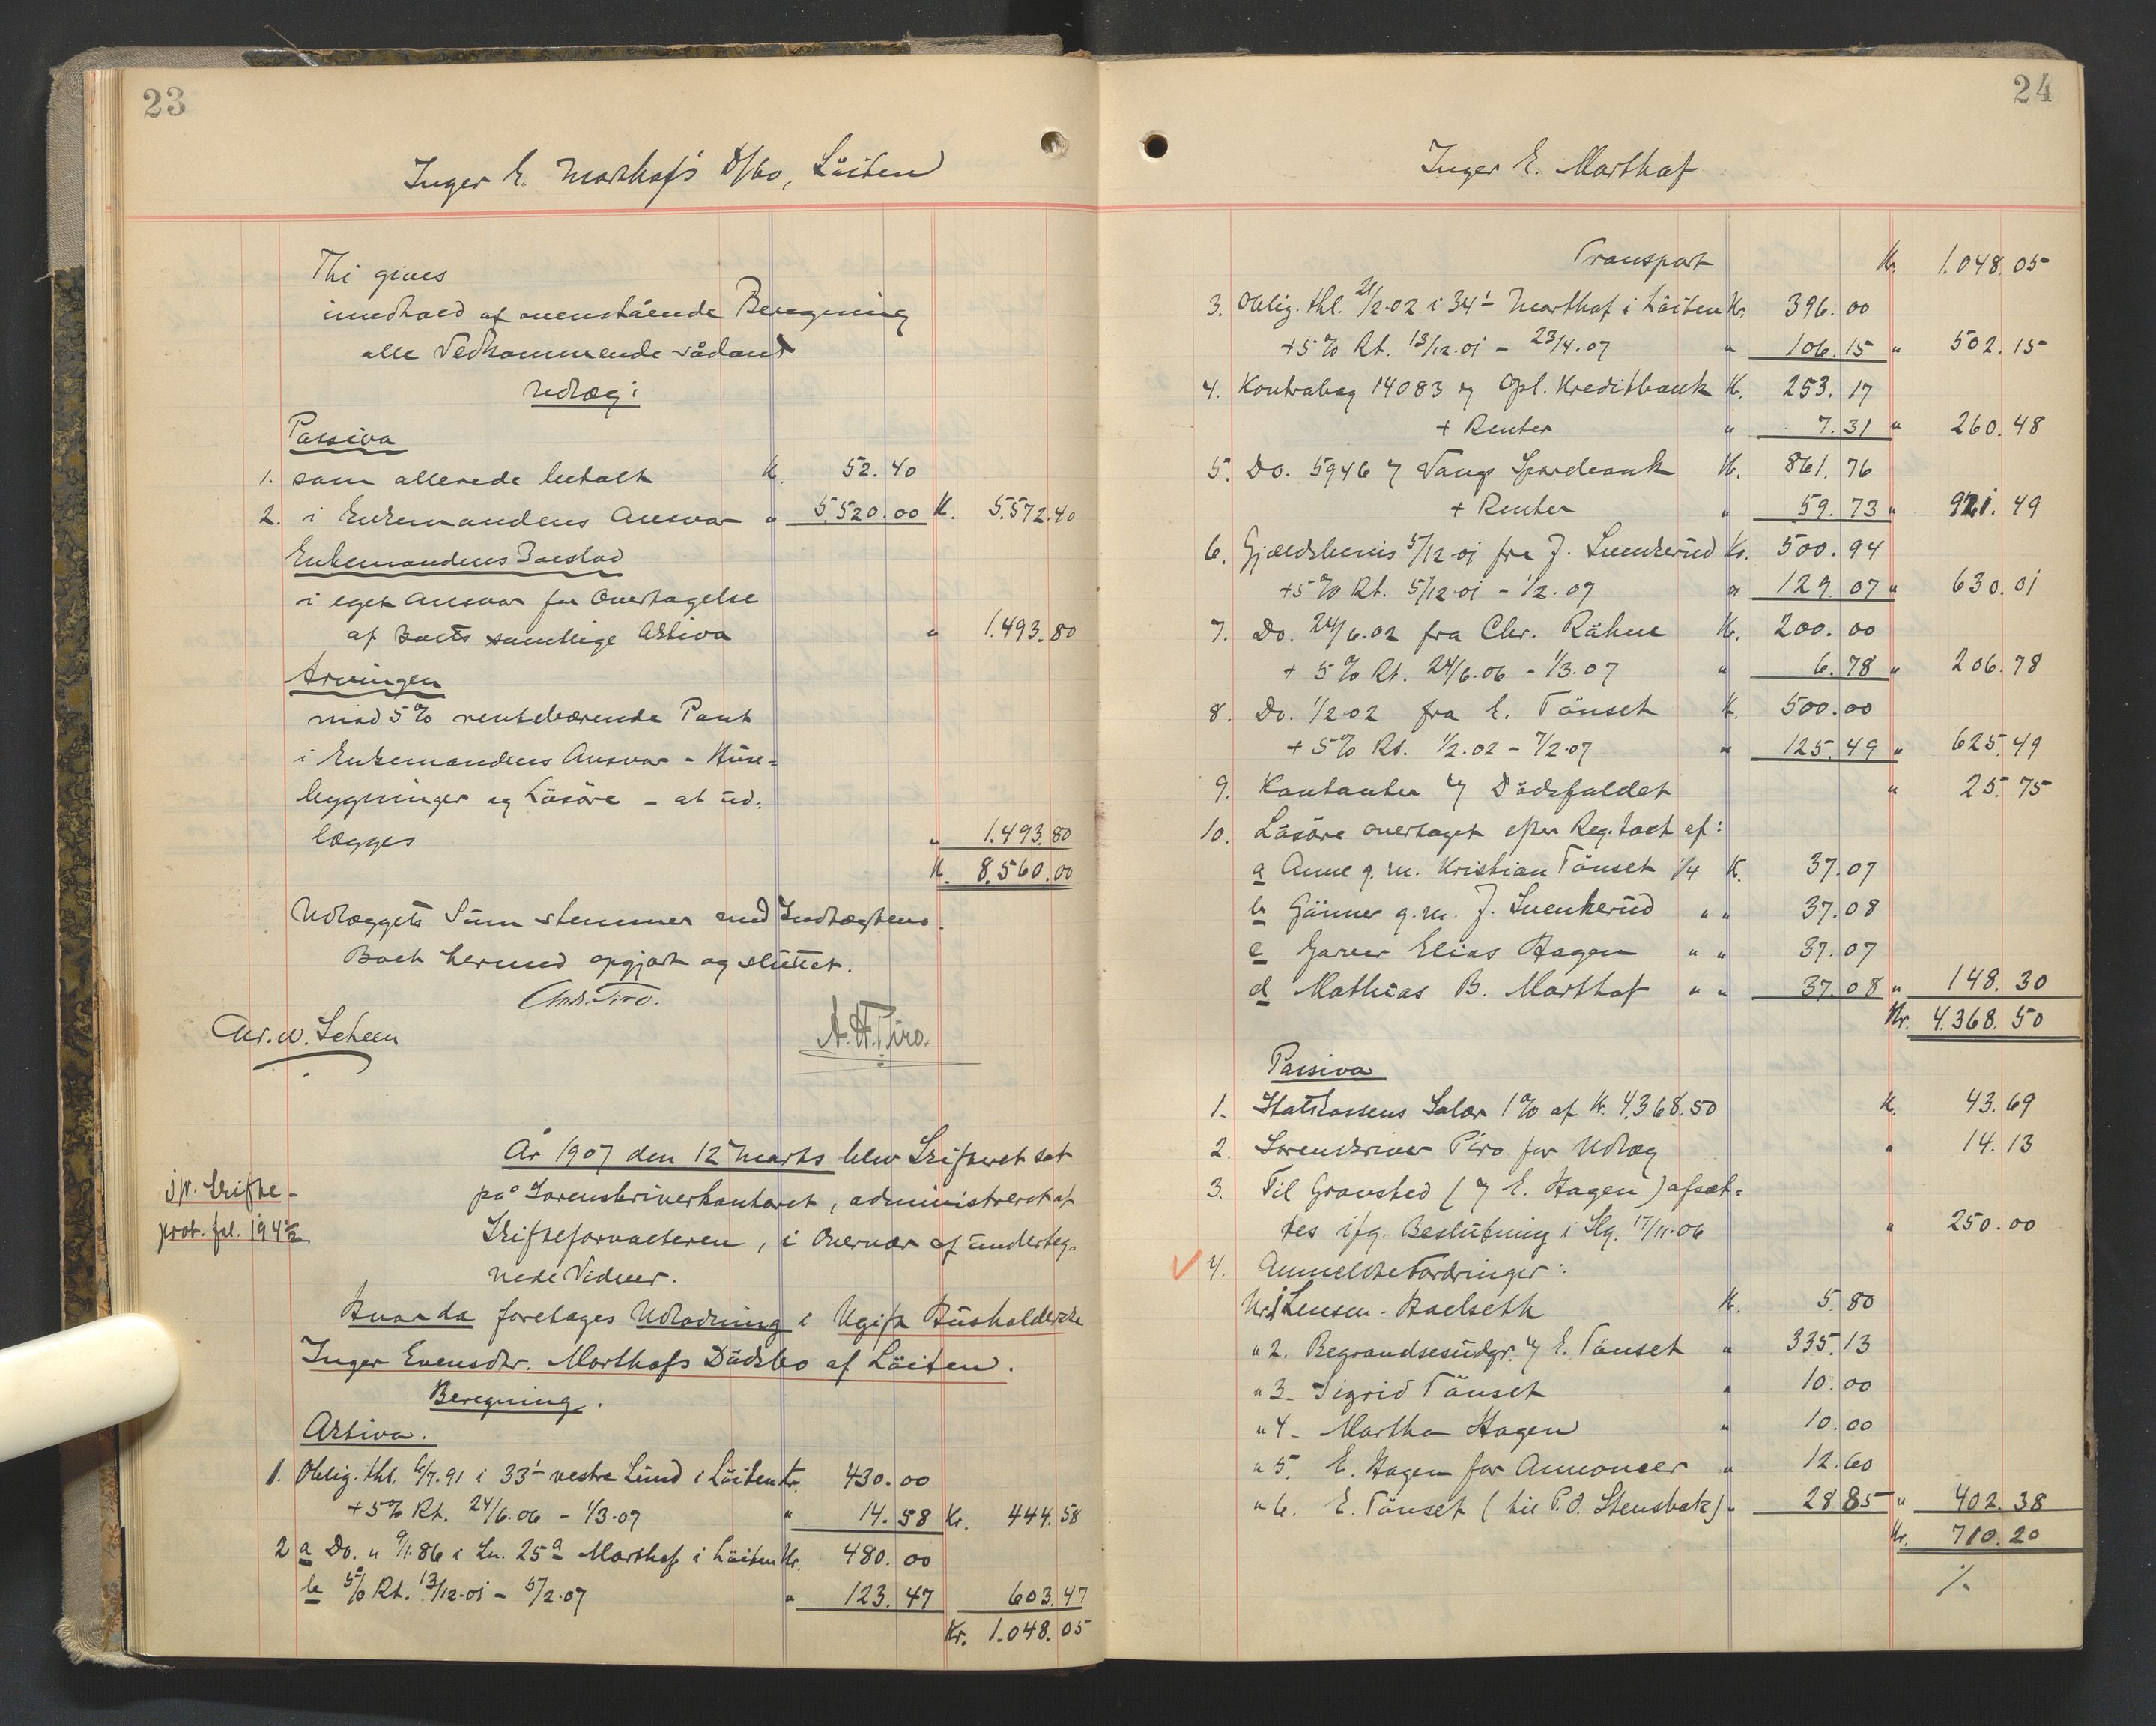 23
Inger E. Marthafs D/bo, Löiten
Thi gives
i medhold af ovenstående Beregning
alle Vedkommende sådant
Udlæg:
Passiva
1. som allerede betalt K. 52.40
2. i Enkemandens Ansvar " 5.520.00 K. 5.572.40
Enkemandens Boeslod
i eget Ansvar for Overtagelse
af Boets samtlige Aktiva " 1.493.80
Arvingen
mod 5% rentebærende Pant
i Enkemandens Ansvar - Huse-
bygninger og Lösöre - at ud-
lægges " 1.493.80
K. 8.560.00
Udlæggets Sum stemmer med Indtægtens.
Boet hermed opgjort og sluttet.
Chr. W. Scheen
A.H. Piro.
År 1907 den 12 Marts blev Skifteret sat
på Sorenskriverkontoret, administreret af
Skifteforvalteren, i Overvær af underteg-
nede Vidner.
jvr. Skifte-
prot. fol. 194 b
Hvorda foretages Udlodning i Ugift Husholderske
Inger Evensdtr. Marthafs Dödsbo af Löiten.
Beregning.
Aktiva.
1. Oblig. thl. 6/7.91 i 33 1 vestre Lund i Löiten Kr. 430.00
+ 5% Rt. 24/6.06 - 1/3.07 " 14.58 Kr. 444.58
2 a Do. " 9/1.86 i Ln. 25 a Marthaf i Löiten Kr. 480.00
b 5% Rt. 13/12.01 - 5/2.07 " 123.47 603.47
Kr. 1.048.05
24
Inger E. Marthaf
Transport K. 1.048.05
3. Oblig. thl. 21/2.02 i 34 1 Marthaf i Löiten K. 396.00
+ 5% Rt. 13/12.01 - 23/4.07 " 106.15 " 502.15
4. Kontrabog 14083 Opl. Kreditbank K. 253.17
+ Renter " 7.31 " 260.48
5. Do. 5946 Vangs Sparebank K. 861.76
+ Renter " 59.73 " 921.49
6. Gjældsbevis 5/12.01 fra J. Svenkerud Kr. 500.94
+ 5% Rt. 5/12.01 - 1/2.07 " 129.07 " 630.01
7. Do. 24/6.02 fra Chr. Råhne Kr. 200.00
+ 5% Rt. 24/6.06 - 1/3.07 " 6.78 " 206.78
8. Do. 1/2.02 fra E. Tönset K. 500.00
+ 5% Rt. 1/2.02 - 7/2.07 " 125.49 " 625.49
9. Kontanter Dödsfaldet " 25.75
10. Lösöre overtaget efter Reg. taxt af:
a Anne g. m. Kristian Tönset 1/4 K. 37.07
b Gunner g. m. J. Svenkerud " " 37.08
c Garver Elias Hagen " " 37.07
d Mathias B. Marthaf " " 37.08 " 148.30
Kr. 4.368.50
Passiva
1. Statskassens Salær 1% af Kr. 4.368.50 K. 43.69
2. Sorenskriver Piro for Udlæg " 14.13
3. Til Gravsted ( E. Hagen) afsæt-
tes ifg. Beslutning i Slg. 17/11.06 " 250.00
4. Anmeldte Fordringer:
Nr. 1 Lensm. Hoelseth K. 5.80
" 2. Begravelsesudgr. E. Tönset " 335.13
" 3. Sigrid Tönset " 10.00
" 4. Martha Hagen " 10.00
" 5. E. Hagen for Annoncer " 12.60
" 6. E. Tönset (til P.O. Stensbak) " 28.85 " 402.38
Kr. 710.20